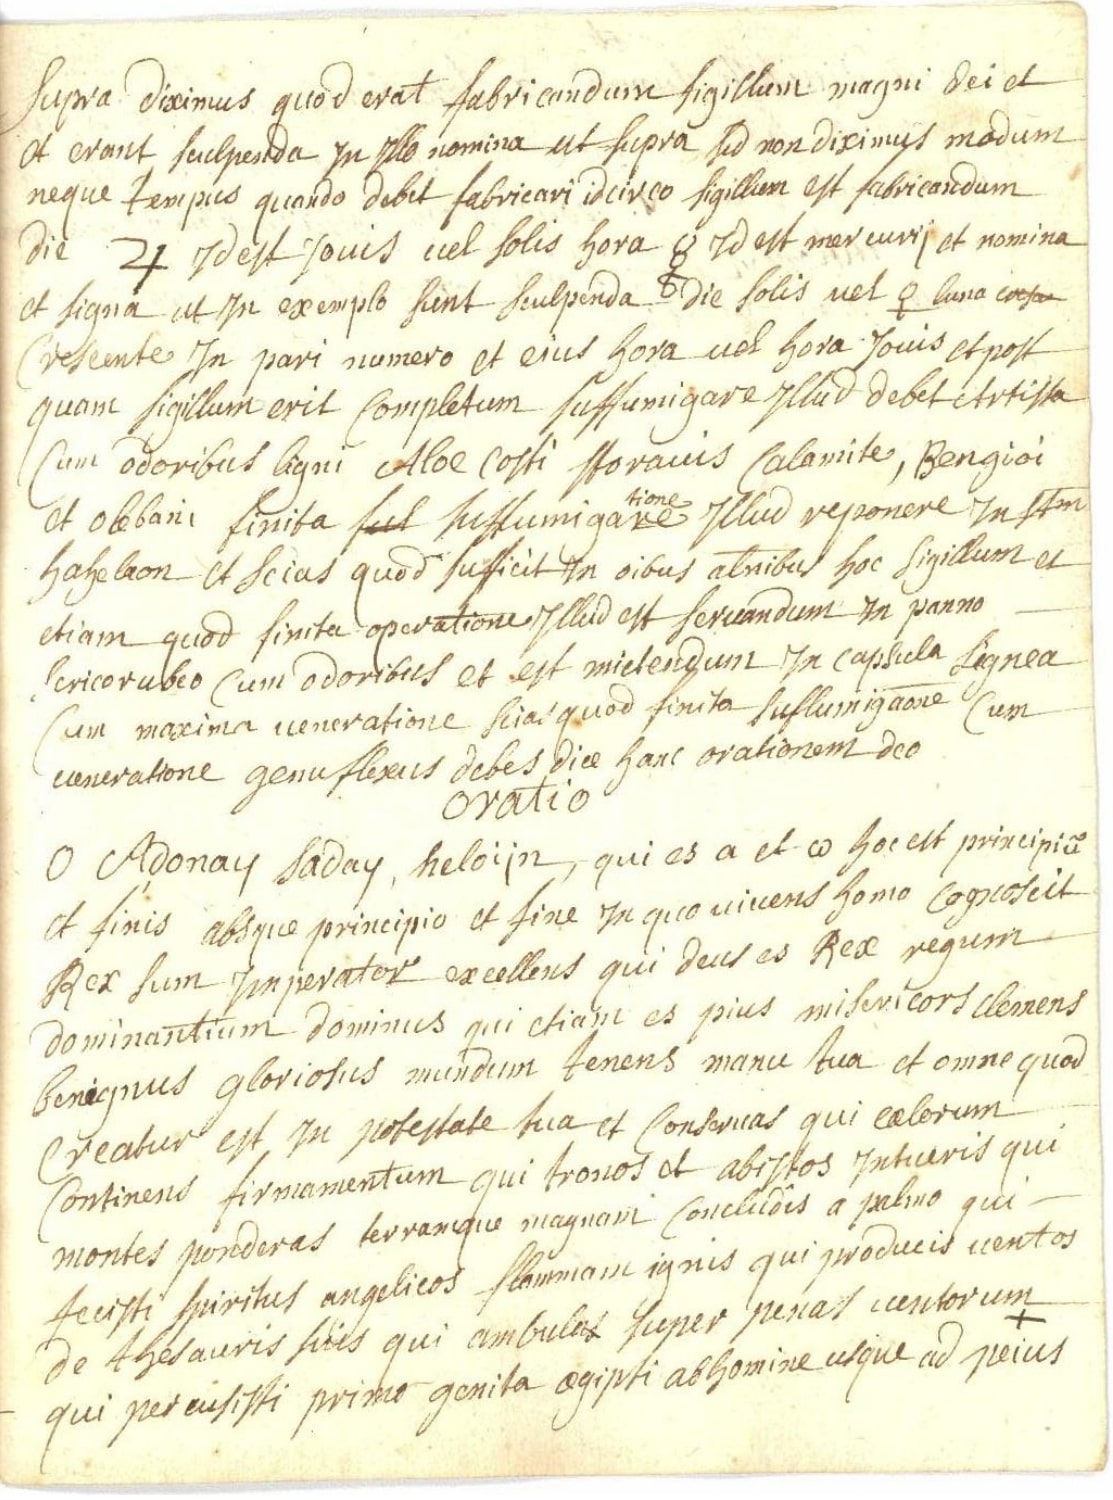 Supra diximus quod erat fabricandum sigillum magni dei et
et erant sculpenda In Illo nomina ut supra sed non diximus modum
neque tempus quando debet fabricari idcirco sigillum est fabricandum
die ♃ Id est Jouis uel solis hora ☿ Id est mercurij et nomina
et signa ut In exemplo sunt sculpenda die solis uel ♀ luna
Crescente In pari numero et eius hora uel hora Jouis et post
quam sigillum erit Completum suffumigare Illud debet Artista
Cum odoribus ligni Aloe Costi storacis Calamite, Bengioi
et olebani finita suffumigatione Illud reponere In
hahelaon et scias quod sufficit In oibus hoc sigillum et
etiam quod finita operatione Illud est seruandum In panno
serico rubeo Cum odoribus et est mictendum In capsula lignea
Cum maxima ueneratione scias quod finita suffumigaone Cum
ueneratione genuflexus debes dice hanc orationem deo
oratio
O Adonay saday, heloijn, qui es a et ω hoc est principiū
et finis absque principio et fine In quo uiuens homo Cognoscit
Rex sum Imperator excellens qui deus es Rex regum
dominantium dominus qui etiam es pius misericors clemens
benignus gloriosus mundum tenens manu tua et omne quod
Creatur est In potestate tua et Conseruas qui cælorum
Continens firmamentum qui tronos et abissos Intueris qui
montes ponderas terramque magnam Concludis a palmo qui
fecisti spiritus angelicos flammam ignis qui producis uentos
de thesauris suis qui ambulas super penas uentorum
qui percusisti primo genita ægipti ab homine usque ad peius